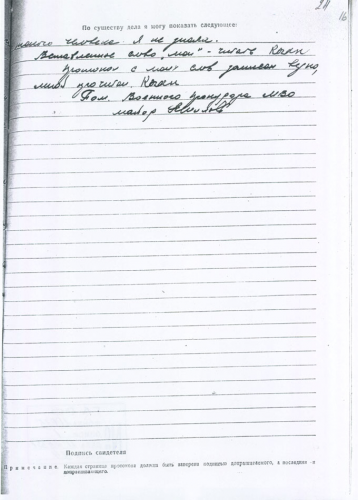 По существу дела я могу показать следующее:
24
16
человека я не знала.
Вставленное слово "мои" – читать Коган
Протокол с моих слов записан верно,
мной прочитан. Коган
Пом. Военного прокурора МВО
майор
Подпись свидетеля
Примечание Каждая страница протокола должна быть заверена подписью допрашиваемого, а последняя – и
допрашивающего.